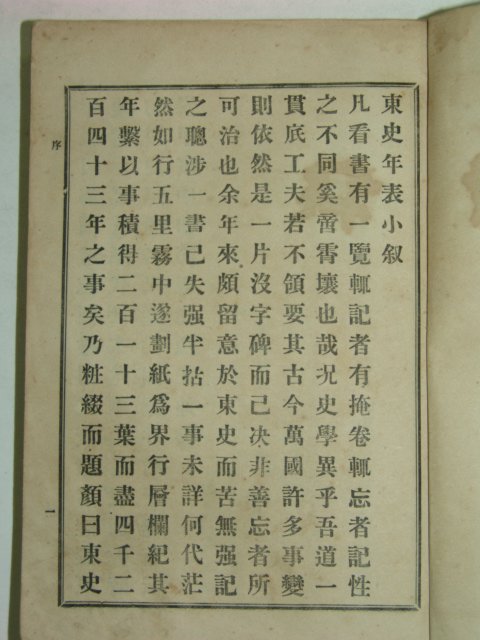 東史年表小叙
凡看書有一覽輒記者有掩卷輒忘者記性
之不同奚啻霄壤也哉况史學異乎吾道一
貫底工夫若不領要其古今萬國許多事變
則依然是一片沒字碑而已决非善忘者所
可治也余年來頗留意於東史而苦無强記
之聰涉一書已失强半拈一事未詳何代茫
然如行五里霧中遂劃紙爲界行層欄紀其
年繫以事積得二百一十三葉而盡四千二
百四十三年之事矣乃粧綴而題顏曰東史
序
一